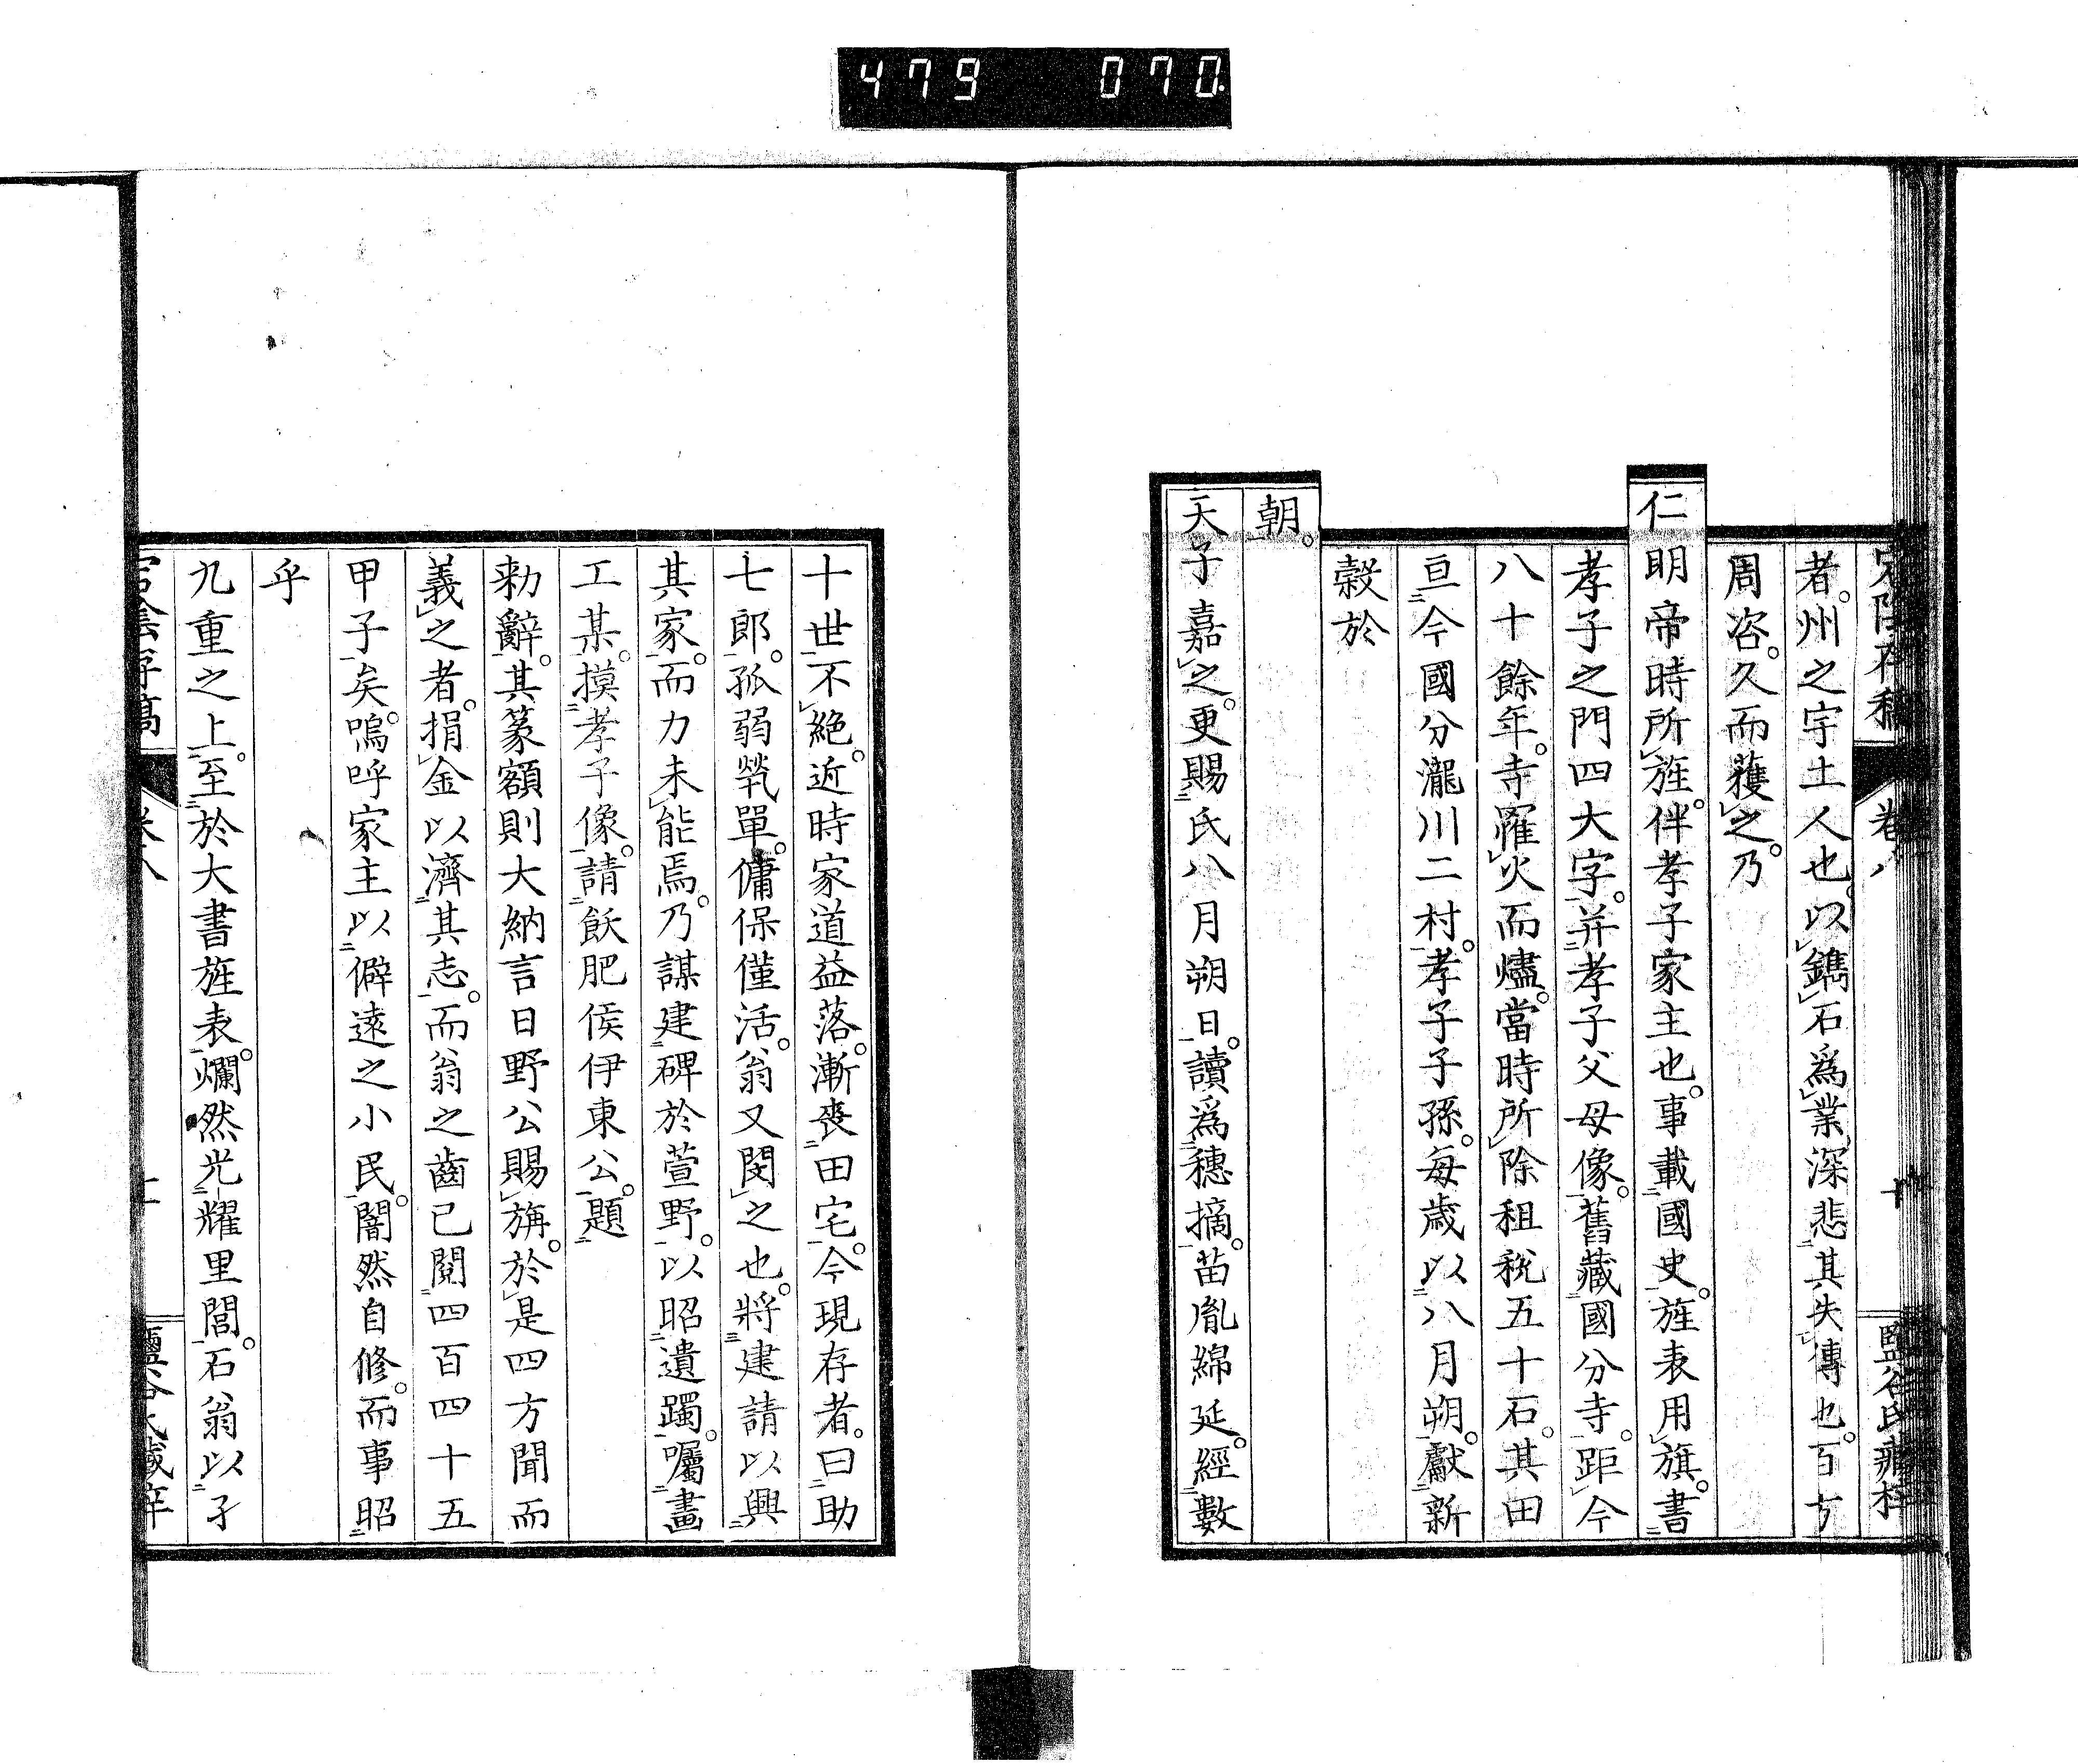 479 070
宕陰存稿 卷八 十 鹽谷氏藏梓
者。州之宇土人也。以鐫石爲業、深悲其失傳也。百方
周咨。久而獲之。乃
仁明帝時所旌。伴孝子家主也。事載國史。旌表用旗。書
孝子之門四大字。并孝子父母像。舊藏國分寺。距今
八十餘年。寺罹火而燼。當時所除租稅五十石。其田
亘今國分瀧川二村。孝子子孫。每歲以八月朔。獻新
穀於
朝。
天子嘉之。更賜氏八月朔日。讀爲穗摘。苗胤綿延。經數
十世不絕。近時家道益落。漸喪田宅。今現存者。曰助
七郎。孤弱煢單。傭保僅活。翁又閔之也。將建請以興
其家。而力未能焉。乃謀建碑於萱野。以昭遺躅。囑畫
工某。摸孝子像。請飫肥侯伊東公。題
勑辭。其篆額則大納言日野公賜旃。於是四方聞而
義之者。捐金以濟其志。而翁之齒已閱四百四十五
甲子矣。嗚呼家主以僻遠之小民。闇然自修。而事昭
乎
九重之上。至於大書旌表。爛然光耀里閭。石翁以孑
宕陰存稿 卷八 十一 鹽谷氏藏梓